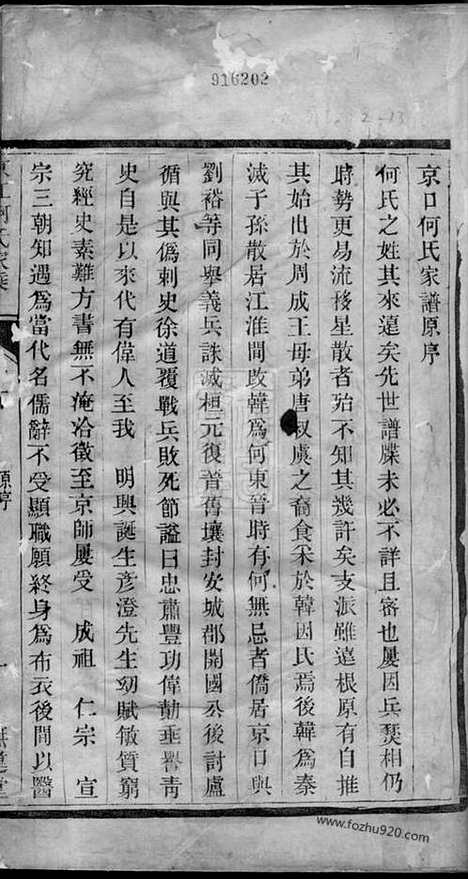 916202
2-13
京口何氏家譜原序
何氏之姓其來遠矣先世譜牒未必不詳且密也屢因兵燹相仍
時勢更易流移星散者殆不知其幾許矣支派雖遠根原有自推
其始出於周成王母弟唐叔虞之裔食采於韓因氏焉後韓為秦
滅子孫散居江淮間改韓為何東晉時有何無忌者僑居京口與
劉裕等同舉義兵誅滅桓元復晉舊壤封安城郡開國公後討盧
循與其偽刺史徐道覆戰兵敗死節謚曰忠肅豐功偉勳垂譽青
史自是以來代有偉人至我 明興誕生彥澄先生幼賦敏質窮
究經史素難方書無不淹洽徵至京師屢受 成祖 仁宗 宣
宗三朝知遇為當代名儒辭不受顯職願終身為布衣後間以醫
原序
一
www.fozhu920.com